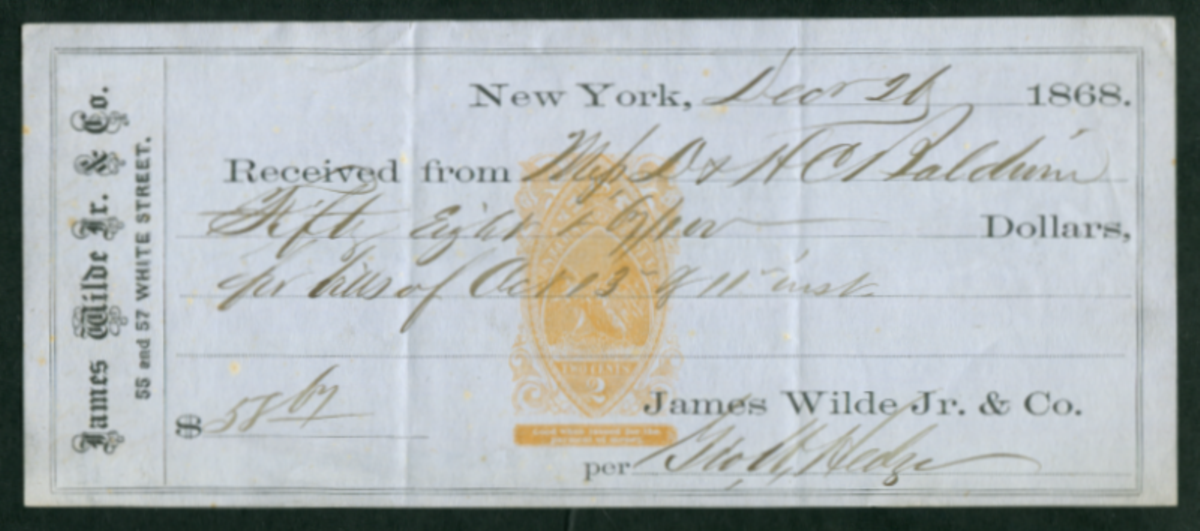 James Wilde Jr. & Co.
55 and 57 WHITE STREET.
New York, Decr 26 1868.
Received from Mess D & H C Baldwin
Fifty Eight & 67/100 Dollars,
for bills of Oct 13 & 11 inst.
TWO CENTS
2
$ 58 67
James Wilde Jr. & Co.
per Geo. W. Hedge